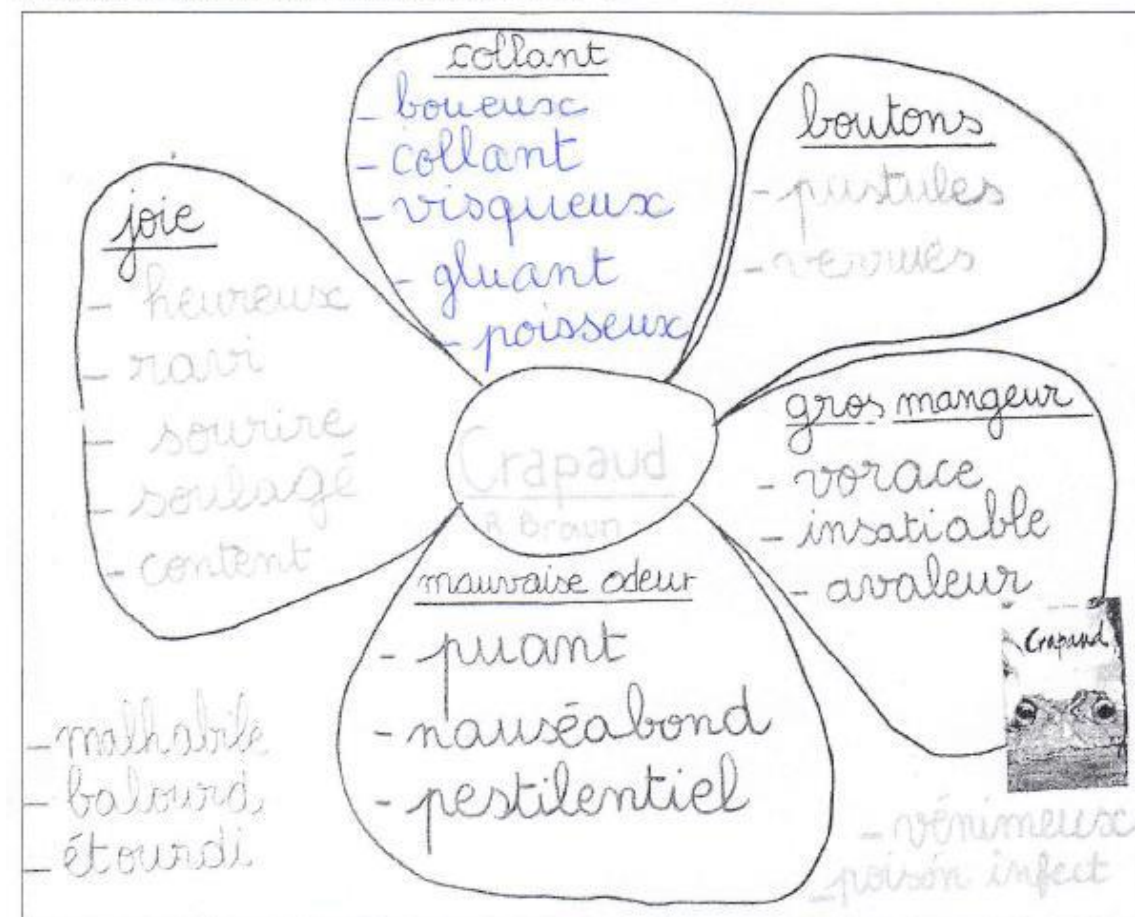 collant
- boueux
- collant
- visqueux
- gluant
- poisseux
boutons
- pustules
- verrues
joie
- heureux
- ravi
- sourire
- soulagé
- content
Crapaud
R Brown
gros mangeur
- vorace
- insatiable
- avaleur
mauvaise odeur
- puant
- nauséabond
- pestilentiel
Crapaud
- malhabile
- balourd
- étourdi
- vénimeux
- poison infect